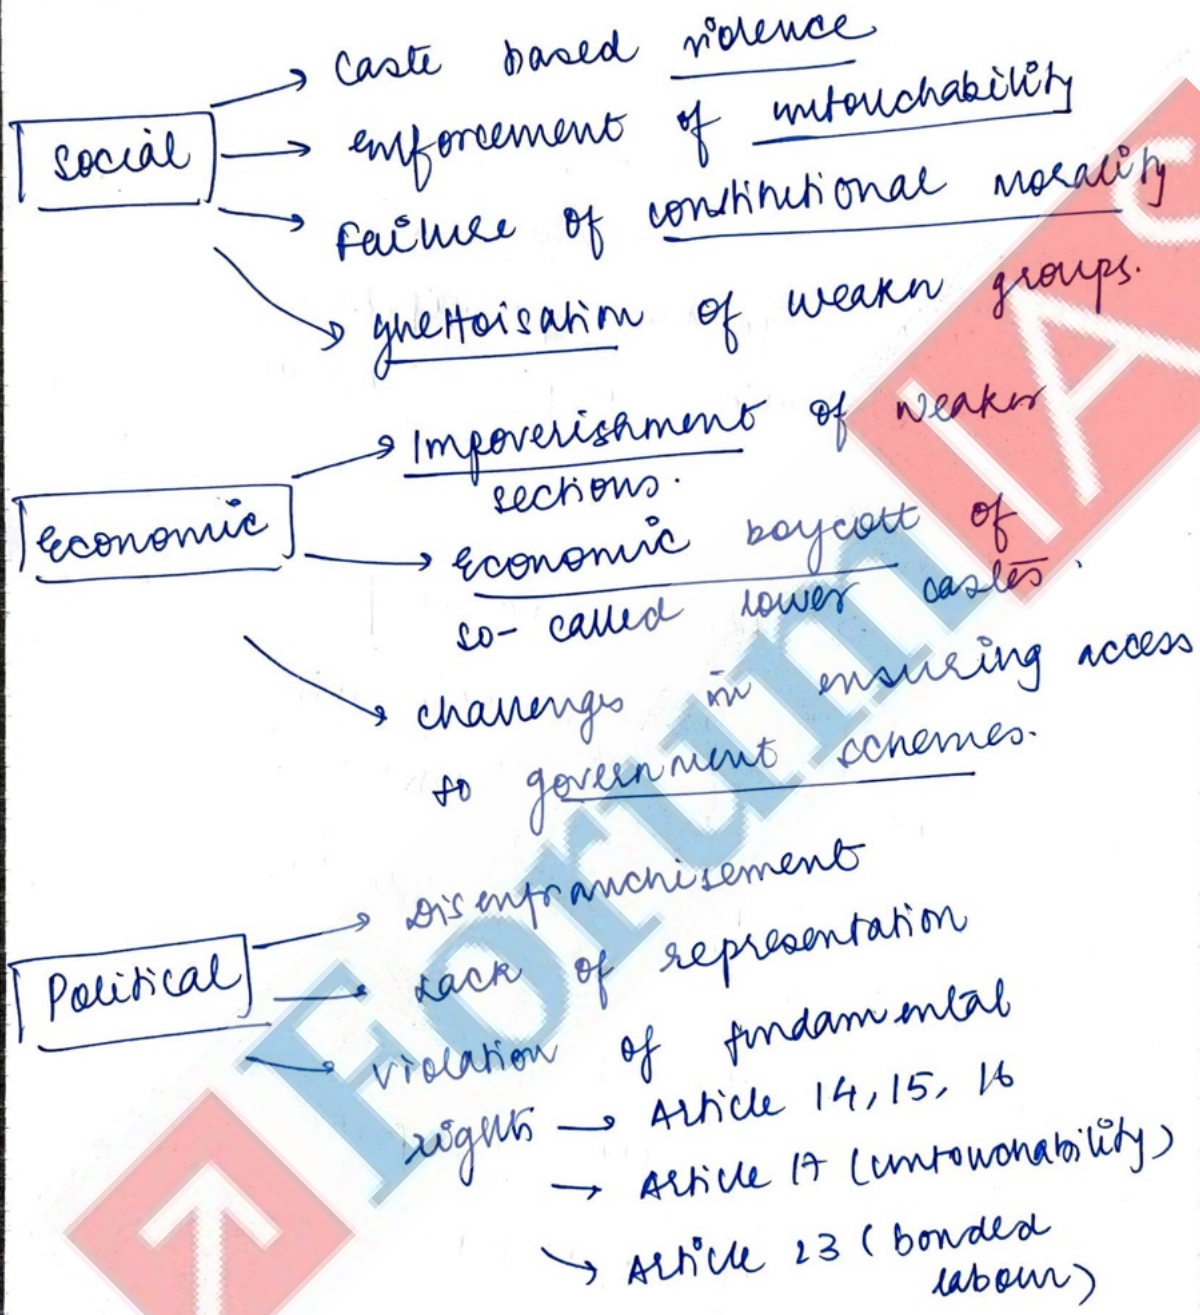 Social
→ Caste based violence
→ enforcement of untouchability
→ Failure of constitutional morality
→ ghettoisation of weaker groups.
Economic
→ Impoverishment of weaker
sections.
→ Economic boycott of
so-called lower castes.
→ challenges in ensuring access
to government schemes.
Political
→ Disenfranchisement
→ Lack of representation
→ violation of fundamental
rights → Article 14, 15, 16
→ Article 17 (untouchability)
→ Article 23 (bonded
labour)
Forum IAS